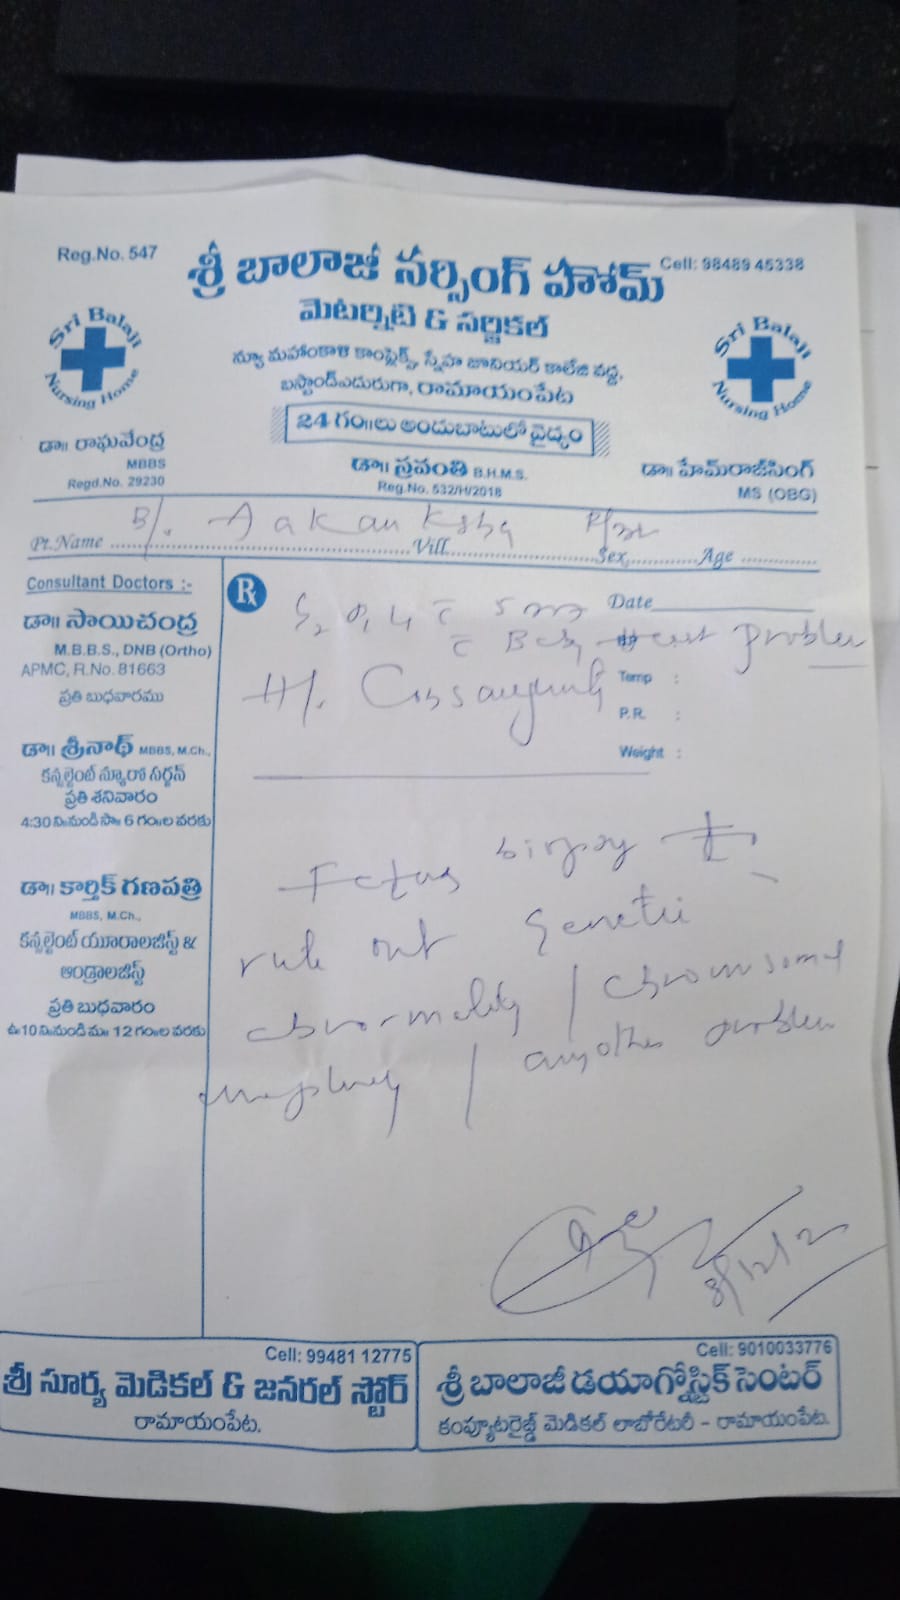 Reg.No. 547
Cell: 98489 45338
శ్రీ బాలాజీ నర్సింగ్ హోమ్
మెటర్నిటి & సర్జికల్
Sri Balaji Nursing Home
Sri Balaji Nursing Home
న్యూ మహాంకాళి కాంప్లెక్స్, స్నేహ జూనియర్ కాలేజి వద్ద,
బస్టాండ్ఎదురుగా, రామాయంపేట
24 గం॥లు అందుబాటులో వైద్యం
డా॥ రాఘవేంద్ర
MBBS
Regd.No. 29230
డా॥ స్రవంతి B.H.M.S.
Reg.No. 532/H/2018
డా॥ హేమ్‌రాజ్‌సింగ్
MS (OBG)
B/. Aakanksha
Pt.Name Vill Sex Age
Consultant Doctors :-
డా॥ సాయిచంద్ర
M.B.B.S., DNB (Ortho)
APMC, R.No. 81663
ప్రతి బుధవారము
డా॥ శ్రీనాథ్ MBBS, M.Ch.,
కన్సల్టెంట్ న్యూరో సర్జన్
ప్రతి శనివారం
4:30 ని॥నుండి సా॥ 6 గం॥ల వరకు
డా॥ కార్తిక్ గణపత్రి
MBBS, M.Ch.,
కన్సల్టెంట్ యూరాలజిస్ట్ &
ఆండ్రాలజిస్ట్
ప్రతి బుధవారం
ఉ॥10 ని॥నుండి మ॥ 12 గం॥ల వరకు
Rx
Date
problem
Temp :
P.R. :
Weight :
Fetus biopsy to
rule out genetic
abnormality / chromosomal
/ any other problem
8/12/2
Cell: 99481 12775
శ్రీ సూర్య మెడికల్ & జనరల్ స్టోర్
రామాయంపేట.
Cell: 9010033776
శ్రీ బాలాజీ డయాగ్నోస్టిక్ సెంటర్
కంప్యూటరైజ్డ్ మెడికల్ లాబోరేటరీ - రామాయంపేట.